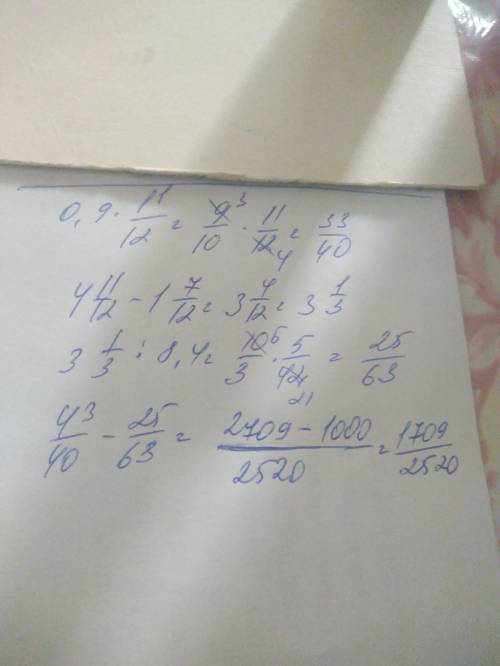 0,9 · 11/12 = 9/10 3 · 11/12 4 = 33/40
4 11/12 - 1 7/12 = 3 4/12 = 3 1/3
3 1/3 : 8,4 = 10/3 5 · 5/42 21 = 25/63
43/40 - 25/63 = 2709 - 1000/2520 = 1709/2520